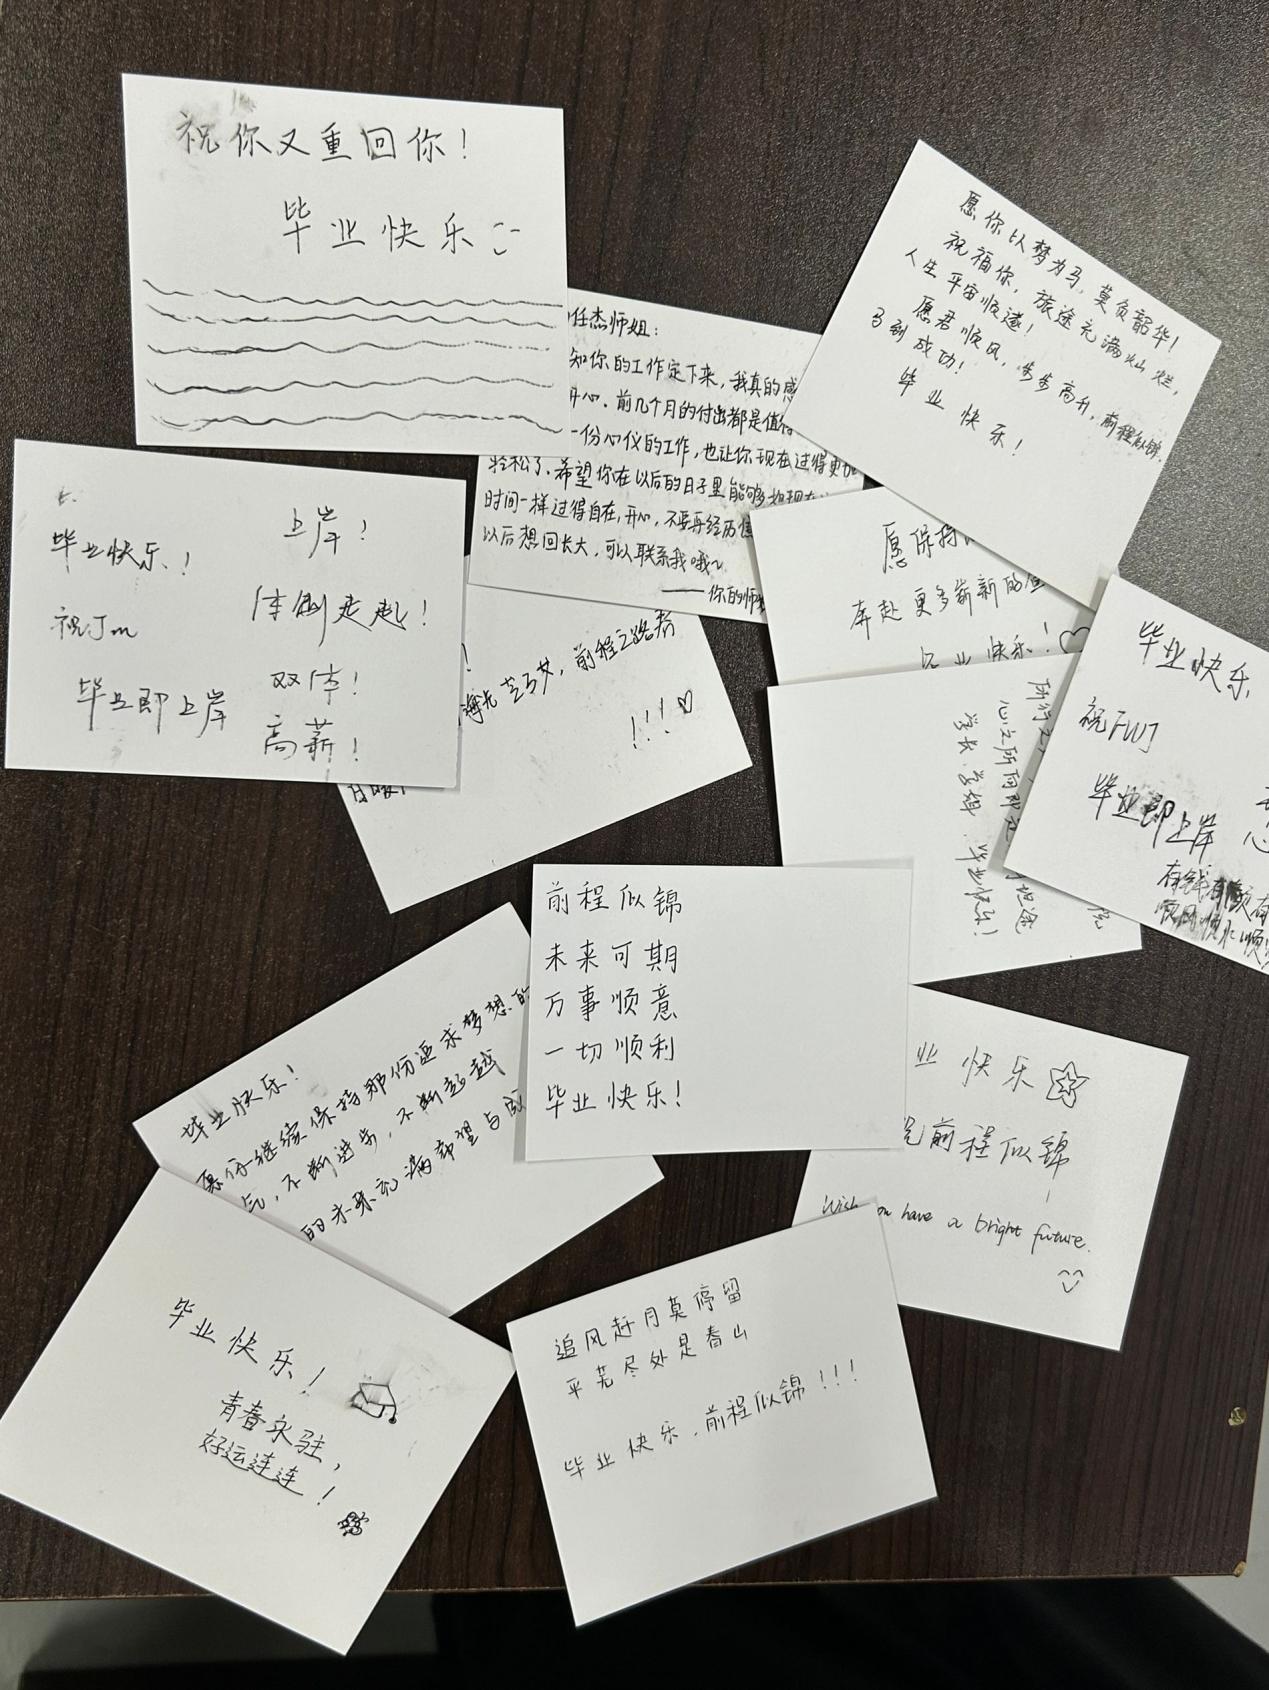 祝你又重回你!
毕业快乐
任杰师姐:
知你的工作定下来,我真的感
开心.前几个月的付出都是值得
一份心仪的工作,也让你现在过得更加
轻松了.希望你在以后的日子里能够
时间一样过得自在,开心,不要再经历
以后想回长大,可以联系我哦~
——你的师
愿你以梦为马,莫负韶华!
祝福你,旅途充满灿烂,
人生平宙顺遂!
愿君顺风,步步高升,前程似锦.
马到成功!
毕业快乐!
毕业快乐!
祝Jm
毕业即上岸
上岸!
体制走起!
双体!
高薪!
前程之路若
!!!
愿你
奔赴更多崭新的
业快乐!
心之所向即
学长、学姐、毕业快乐!
毕业快乐
祝FWJ
毕业即上岸
有钱有颜有
前程似锦
未来可期
万事顺意
一切顺利
毕业快乐!
毕业快乐!
愿你继续保持那份追求梦想的
气,不断进步,不断超越
的未来充满希望与
业快乐
前程似锦
Wish you have a bright future.
毕业快乐!
青春永驻,
好运连连!
追风赶月莫停留
平芜尽处是春山
毕业快乐,前程似锦!!!